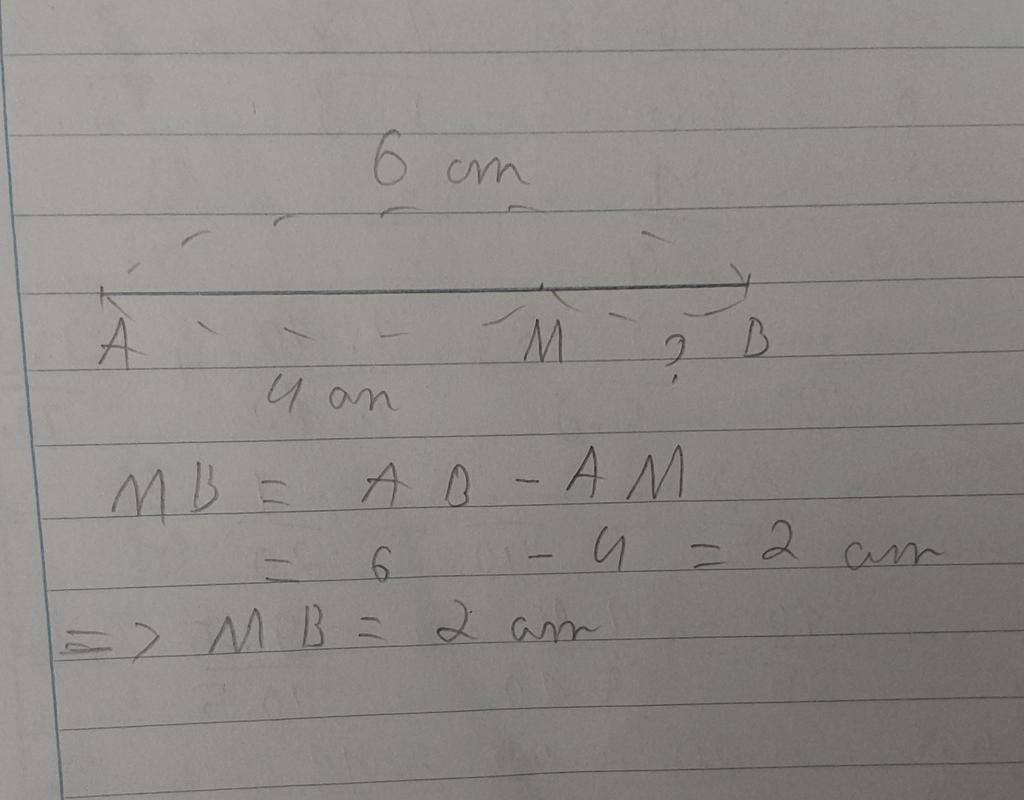 6 cm
A M ? B
4 cm
MB = AB - AM
= 6 - 4 = 2 cm
=> MB = 2 cm